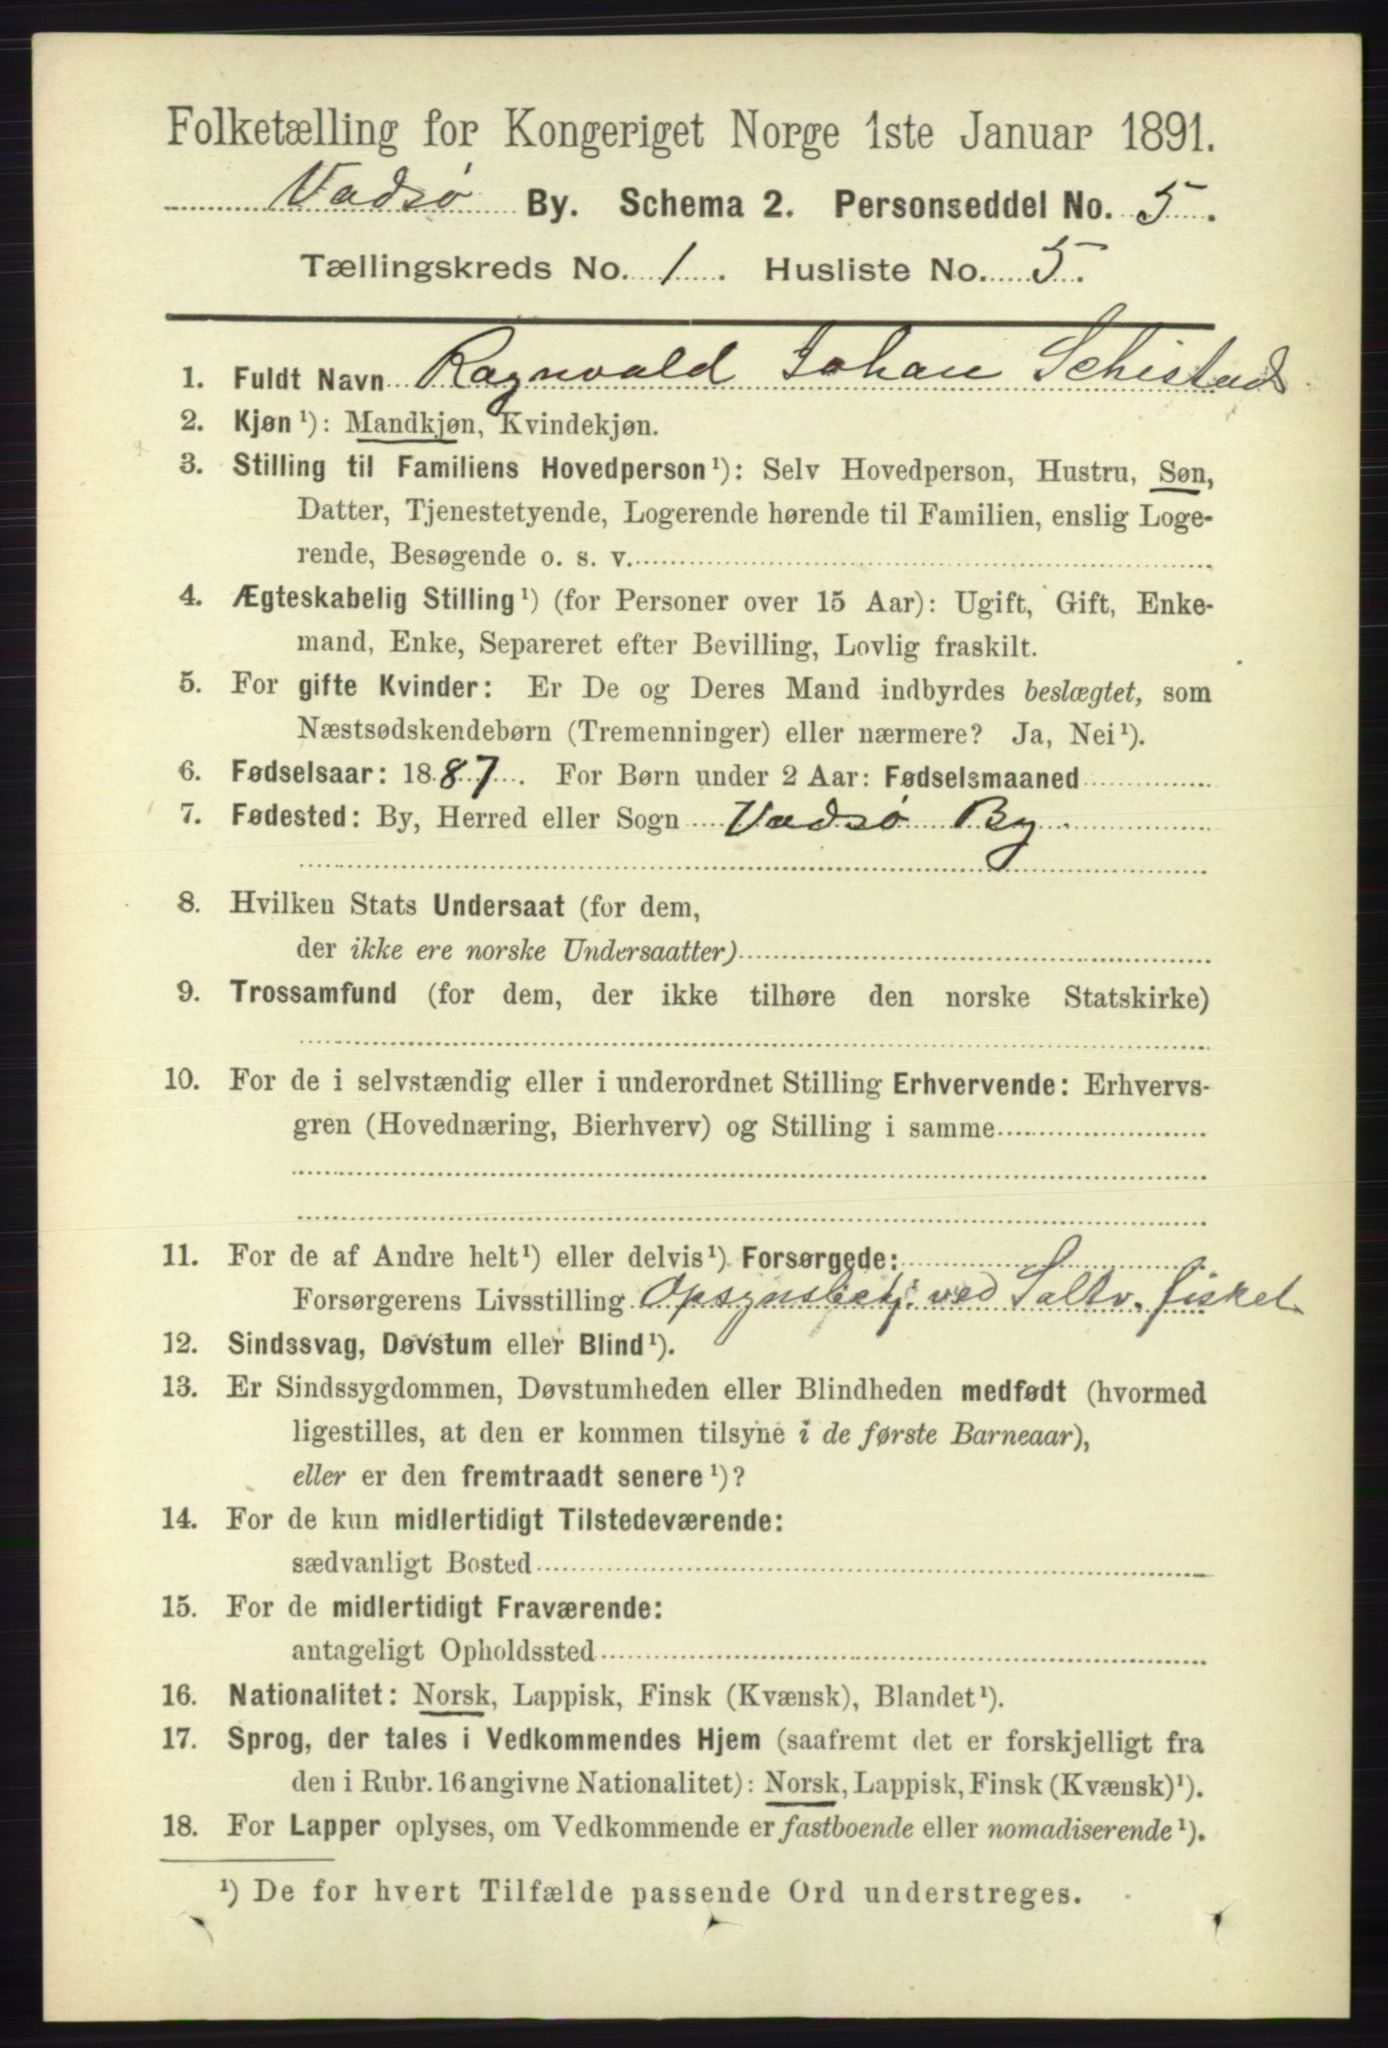 Folketælling for Kongeriget Norge 1ste Januar 1891.
Vadsø By. Schema 2. Personseddel No. 5.
Tællingskreds No. 1. Husliste No. 5.
1. Fuldt Navn Ragnvald Johan Schistad
2. Kjøn¹): Mandkjøn, Kvindekjøn.
3. Stilling til Familiens Hovedperson¹): Selv Hovedperson, Hustru, Søn,
Datter, Tjenestetyende, Logerende hørende til Familien, enslig Loge-
rende, Besøgende o. s. v.
4. Ægteskabelig Stilling¹) (for Personer over 15 Aar): Ugift, Gift, Enke-
mand, Enke, Separeret efter Bevilling, Lovlig fraskilt.
5. For gifte Kvinder: Er De og Deres Mand indbyrdes beslægtet, som
Næstsødskendebørn (Tremenninger) eller nærmere? Ja, Nei¹).
6. Fødselsaar: 1887. For Børn under 2 Aar: Fødselsmaaned
7. Fødested: By, Herred eller Sogn Vadsø By.
8. Hvilken Stats Undersaat (for dem,
der ikke ere norske Undersaatter)
9. Trossamfund (for dem, der ikke tilhøre den norske Statskirke)
10. For de i selvstændig eller i underordnet Stilling Erhvervende: Erhvervs-
gren (Hovednæring, Bierhverv) og Stilling i samme
11. For de af Andre helt¹) eller delvis¹) Forsørgede:
Forsørgerens Livsstilling Opsynsbetj. ved Saltv. fisket
12. Sindssvag, Døvstum eller Blind¹).
13. Er Sindssygdommen, Døvstumheden eller Blindheden medfødt (hvormed
ligestilles, at den er kommen tilsyne i de første Barneaar),
eller er den fremtraadt senere¹)?
14. For de kun midlertidigt Tilstedeværende:
sædvanligt Bosted
15. For de midlertidigt Fraværende:
antageligt Opholdssted
16. Nationalitet: Norsk, Lappisk, Finsk (Kvænsk), Blandet¹).
17. Sprog, der tales i Vedkommendes Hjem (saafremt det er forskjelligt fra
den i Rubr. 16 angivne Nationalitet): Norsk, Lappisk, Finsk (Kvænsk)¹).
18. For Lapper oplyses, om Vedkommende er fastboende eller nomadiserende¹).
¹) De for hvert Tilfælde passende Ord understreges.